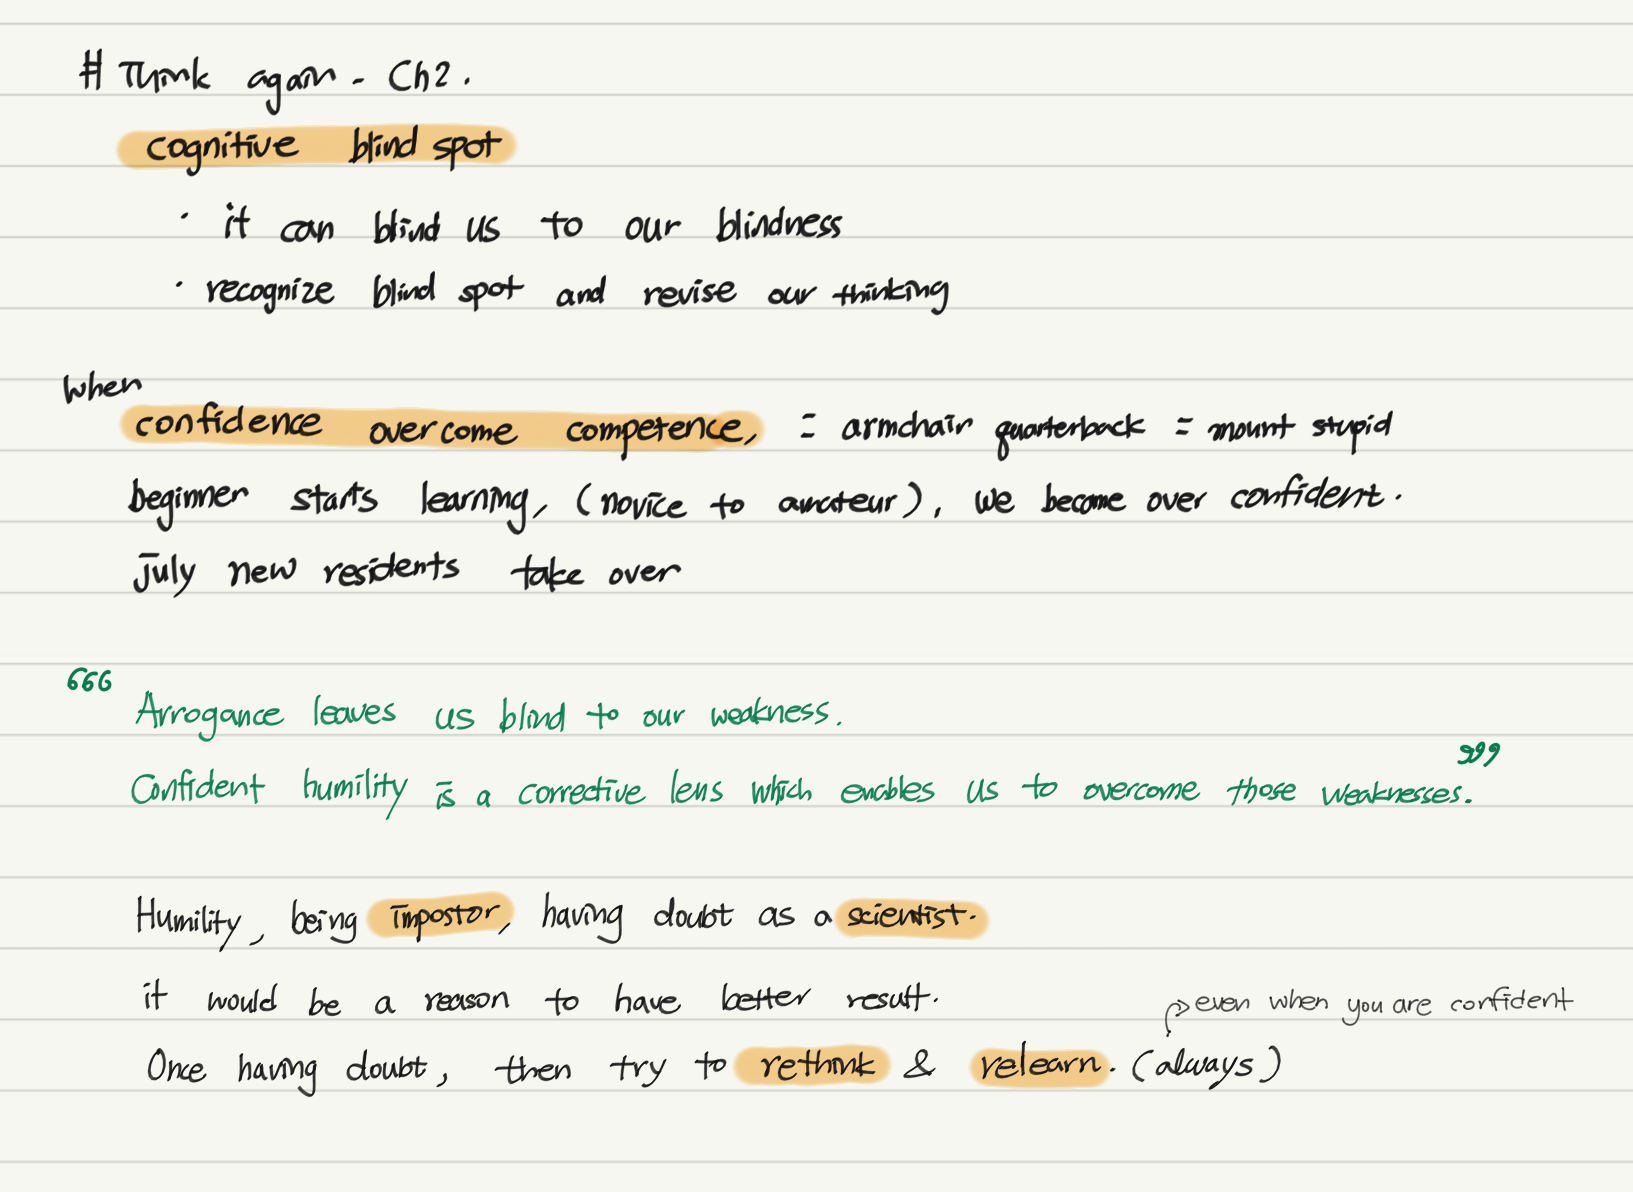 # Think again - Ch2.
cognitive blind spot
· it can blind us to our blindness
· recognize blind spot and revise our thinking
When
confidence overcome competence, = armchair quarterback = mount stupid
beginner starts learning, (novice to amateur), we become over confident.
July new residents take over
666
Arrogance leaves us blind to our weakness.
999
Confident humility is a corrective lens which enables us to overcome those weaknesses.
Humility, being impostor, having doubt as a scientist.
it would be a reason to have better result.
even when you are confident
Once having doubt, then try to rethink & relearn. (always)